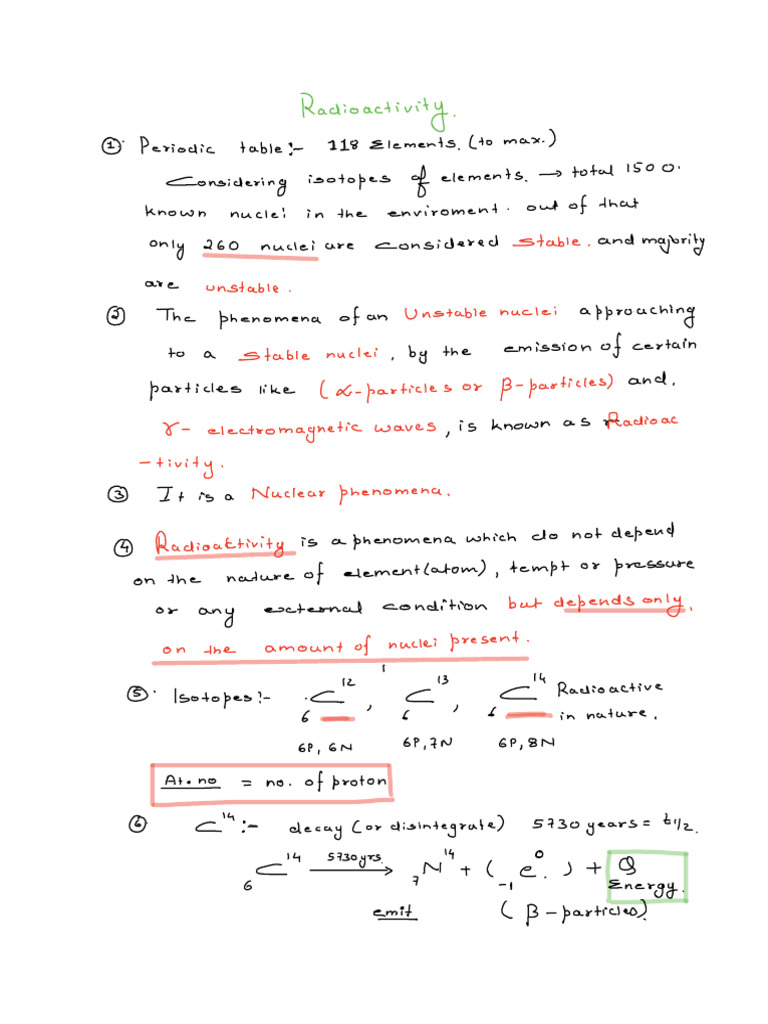 Radioactivity.
① Periodic table:- 118 Elements. (to max.)
Considering isotopes of elements. → total 1500.
known nuclei in the enviroment. out of that
only 260 nuclei are considered stable. and majority
are unstable.
② The phenomena of an Unstable nuclei approaching
to a stable nuclei, by the emission of certain
particles like (α-particles or β-particles) and.
γ- electromagnetic waves, is known as Radioac
-tivity.
③ It is a Nuclear phenomena.
④ Radioaktivity is a phenomena which do not depend
on the nature of element(atom), tempt or pressure
or any external condition but depends only.
on the amount of nuclei present.
⑤ Isotopes:- ₆C¹², ₆C¹³, ₆C¹⁴ Radioactive
in nature.
6P, 6N 6P,7N 6P,8N
At. no = no. of proton
⑥ C¹⁴:- decay (or disintegrate) 5730 years = t1/2.
₆C¹⁴ 5730yrs. → ₇N¹⁴ + ( ₋₁e⁰. ) + Q
Energy.
emit (β-particles).